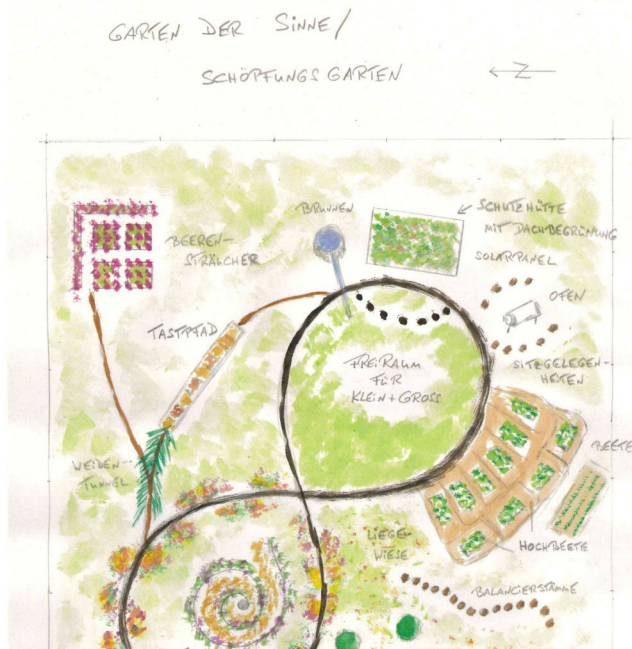 GARTEN DER SINNE/
SCHÖPFUNGSGARTEN
Z
BRUNNEN
SCHUTZHÜTTE
MIT DACHBEGRÜNUNG
SOLARPANEL
BEEREN-
STRÄUCHER
OFEN
TASTPFAD
FREIRAUM
FÜR
KLEIN+GROSS
SITZGELEGEN-
HEITEN
WEIDEN-
TUNNEL
BEETE
LIEGE-
WIESE
HOCHBEETE
BALANCIERSTÄMME